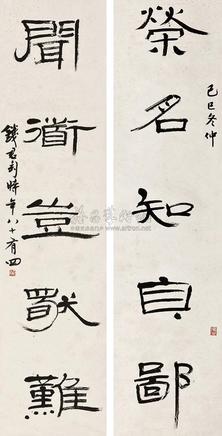 榮名知自鄙
己巳冬仲
聞衜豈猒難
錢君匋時年八十有四